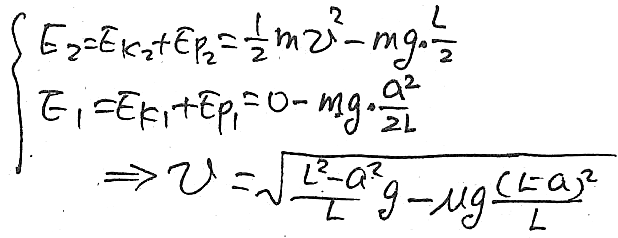 E₂=Eₖ₂+Eₚ₂=½mv²-mg·L/2
E₁=Eₖ₁+Eₚ₁=0-mg·a²/2L
⇒ v=√((L²-a²)/L g-μg (L-a)²/L)